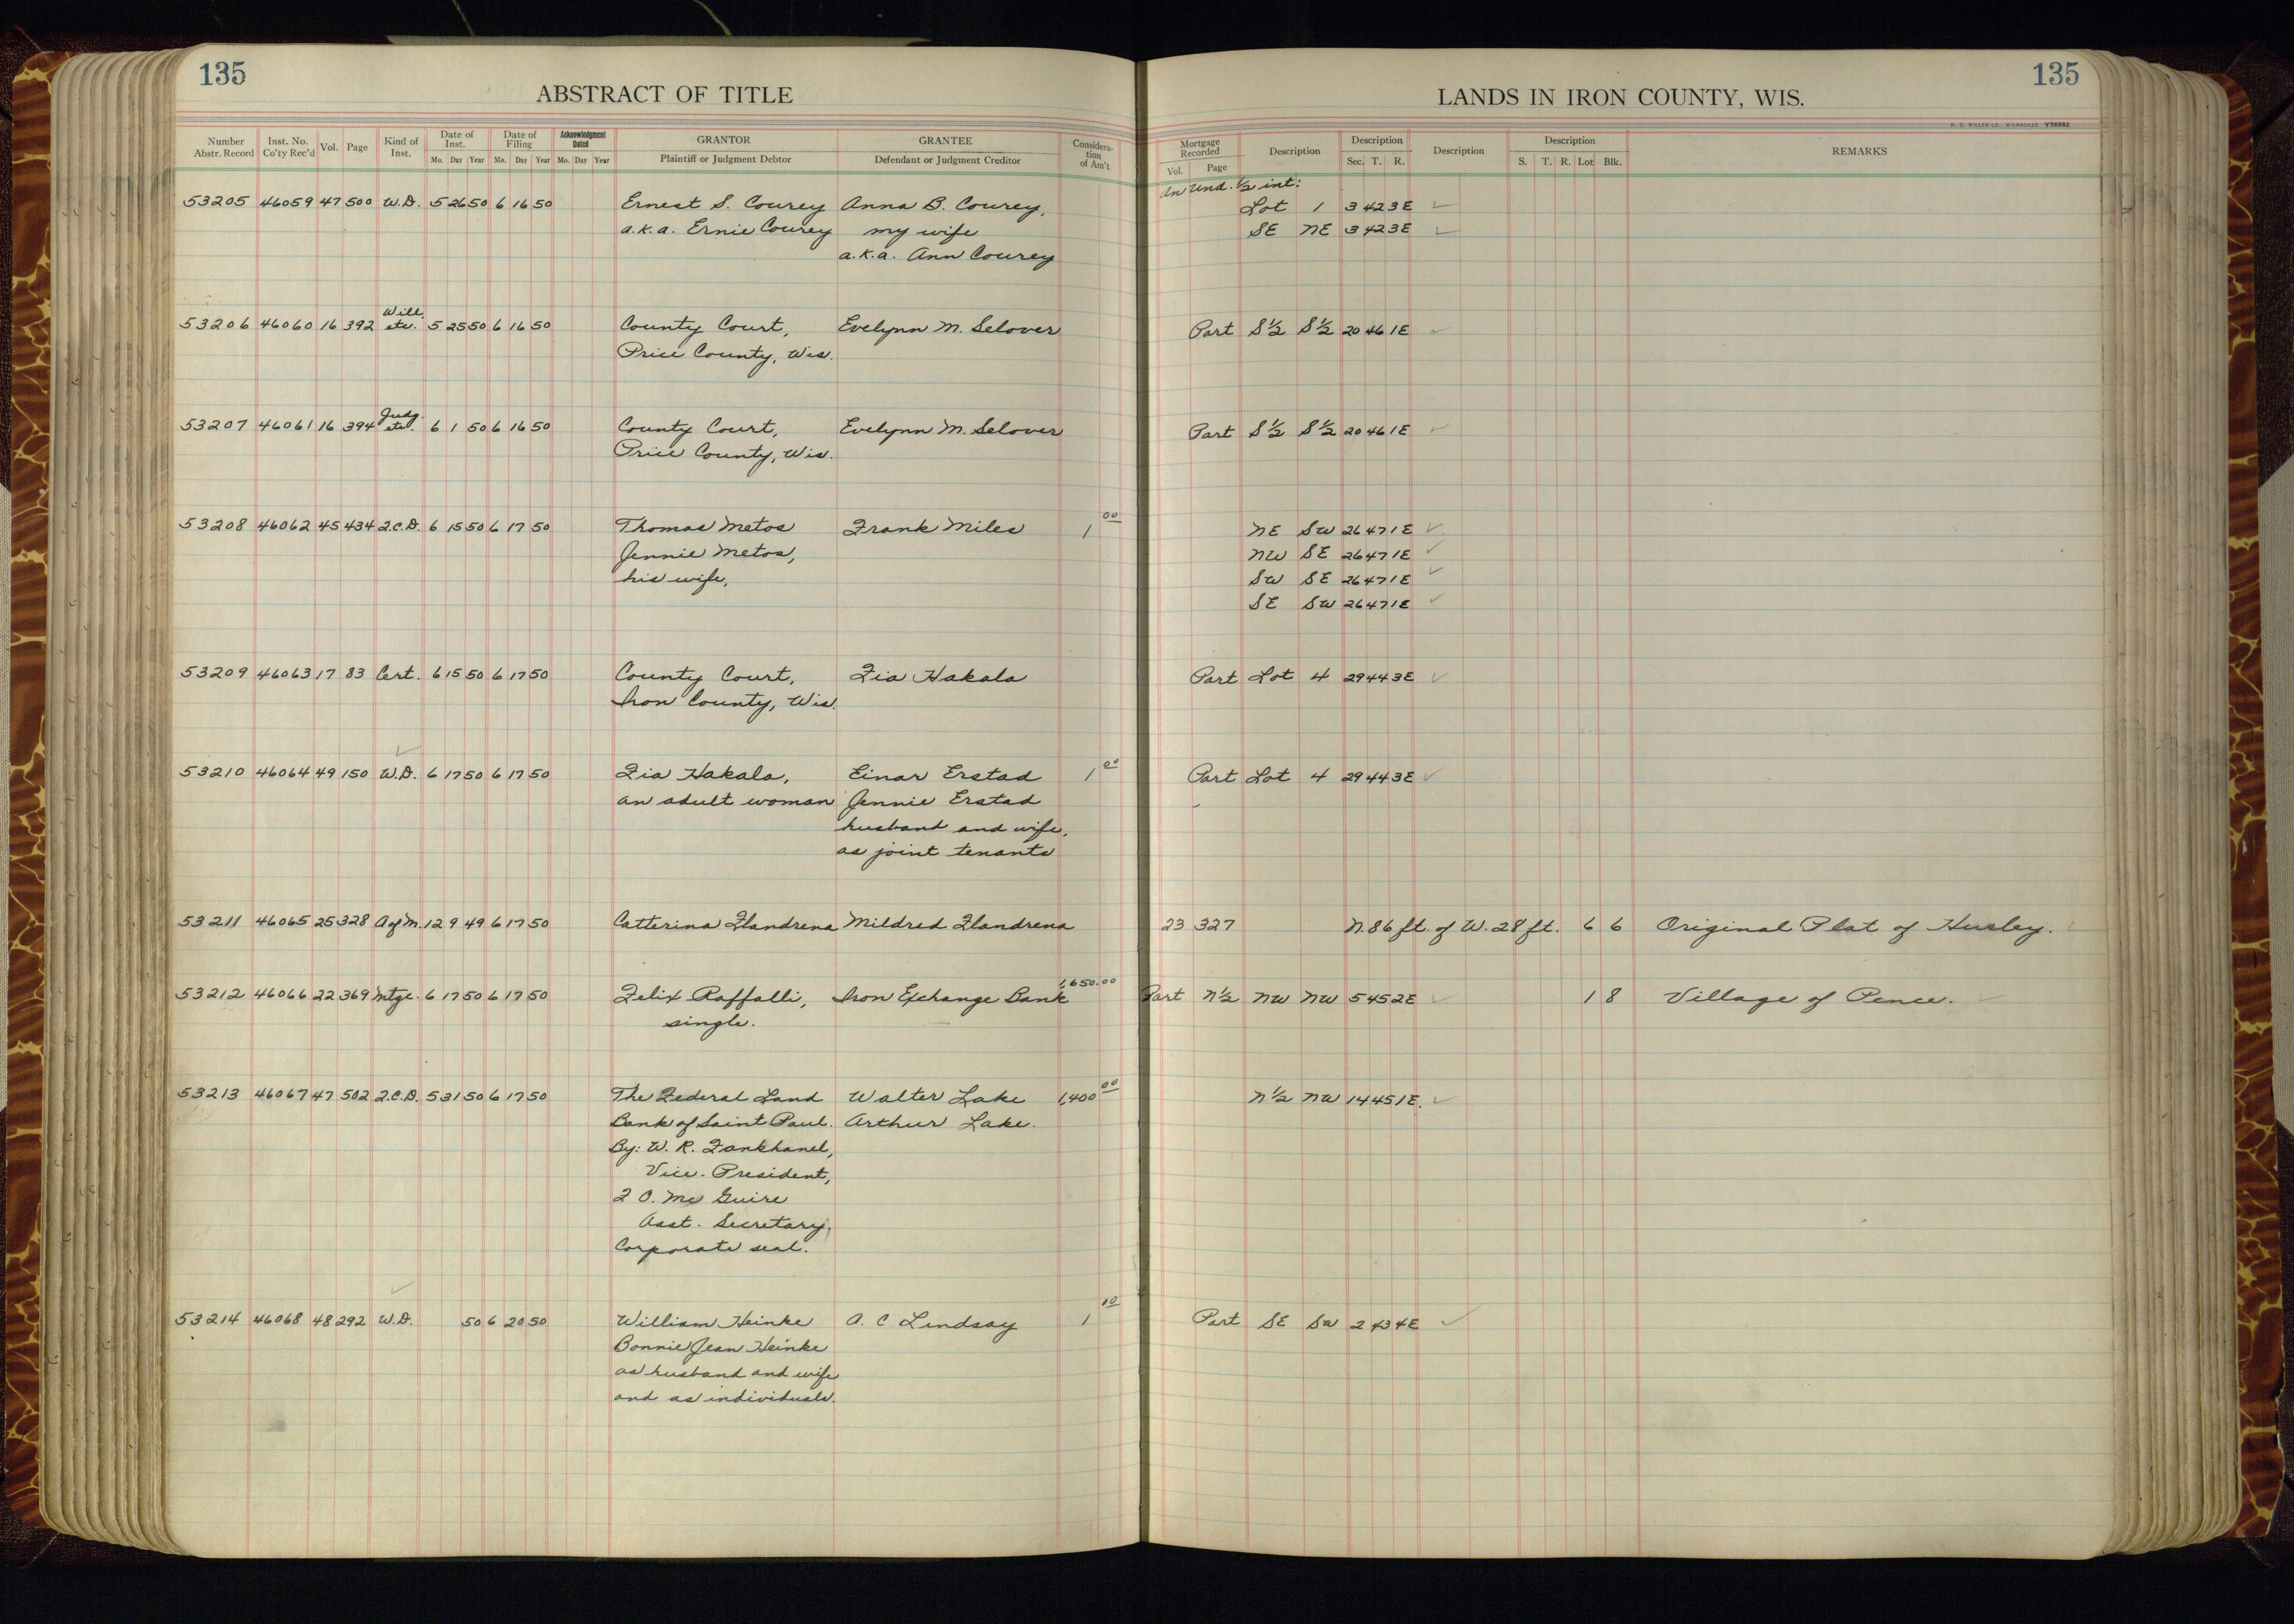 135
ABSTRACT OF TITLE
Number Abstr. Record Inst. No. Co'ty Rec'd Vol. Page Kind of Inst. Date of Inst. Mo. Day Year Date of Filing Mo. Day Year Acknowledgment Dated Mo. Day Year GRANTOR Plaintiff or Judgment Debtor GRANTEE Defendant or Judgment Creditor Considera-tion of Am't
53205 46059 47 500 W.D. 5 26 50 6 16 50 Ernest S. Courey Anna B. Courey,
a.k.a. Ernie Courey my wife
a.k.a. Ann Courey
Will
53206 46060 16 392 etc. 5 25 50 6 16 50 County Court, Evelynn M. Selover
Price County, Wis.
Judg.
53207 46061 16 394 etc. 6 1 50 6 16 50 County Court, Evelynn M. Selover
Price County, Wis.
53208 46062 45 434 2.C.D. 6 15 50 6 17 50 Thomas Metos Frank Miles 1 00
Jennie Metos,
his wife,
53209 46063 17 83 Cert. 6 15 50 6 17 50 County Court, Lia Hakala
Iron County, Wis.
53210 46064 49 150 W.D. 6 17 50 6 17 50 Lia Hakala, Einar Erstad 1 00
an adult woman Jennie Erstad
husband and wife,
as joint tenants
53211 46065 25 328 A of M. 12 9 49 6 17 50 Catterina Flandrena Mildred Flandrena
53212 46066 22 369 Mtge. 6 17 50 6 17 50 Felix Raffalli, Iron Exchange Bank 1,650.00
single.
53213 46067 47 502 2.C.D. 5 31 50 6 17 50 The Federal Land Walter Lake 1,400 00
Bank of Saint Paul. Arthur Lake.
By: W. R. Fankhanel,
Vice-President,
F O. Mc Guire
Asst. Secretary,
Corporate seal.
53214 46068 48 292 W.D. 50 6 20 50 William Heinke A. C Lindsay 1 00
Bonnie Jean Heinke
as husband and wife
and as individuals.
135
LANDS IN IRON COUNTY, WIS.
H. C. MILLER CO., MILWAUKEE Y56882
Mortgage Recorded Vol. Page Description Description Sec. T. R. Description Description S. T. R. Lot Blk. REMARKS
An Und. ½ int:
Lot 1 3 42 3E ✓
SE NE 3 42 3E ✓
Part S½ S½ 20 46 1E ✓
Part S½ S½ 20 46 1E ✓
NE SW 26 47 1E ✓
NW SE 26 47 1E ✓
SW SE 26 47 1E ✓
SE SW 26 47 1E ✓
Part Lot 4 29 44 3E ✓
Part Lot 4 29 44 3E ✓
23 327 N. 86 ft. of W. 28 ft. 6 6 Original Plat of Hurley. ✓
Part N½ NW NW 5 45 2E ✓ 1 8 Village of Pence. ✓
N½ NW 14 45 1E. ✓
Part SE SW 2 43 4E ✓